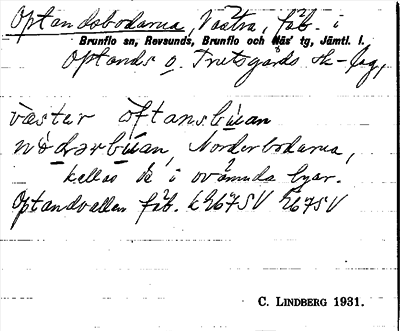 Optandsbodarna, Västra, fäb. i
Brunflo sn, Revsunds, Brunflo och Näs' tg, Jämtl. l.
Optands o. Tretsgårds sk-lag,
väster oftansbuan
nö̀dərbuan, Norderbodarna,
kallas de i ovannämnda byar.
Optandvallen fäb. k 267SV 267SV
C. LINDBERG 1931.